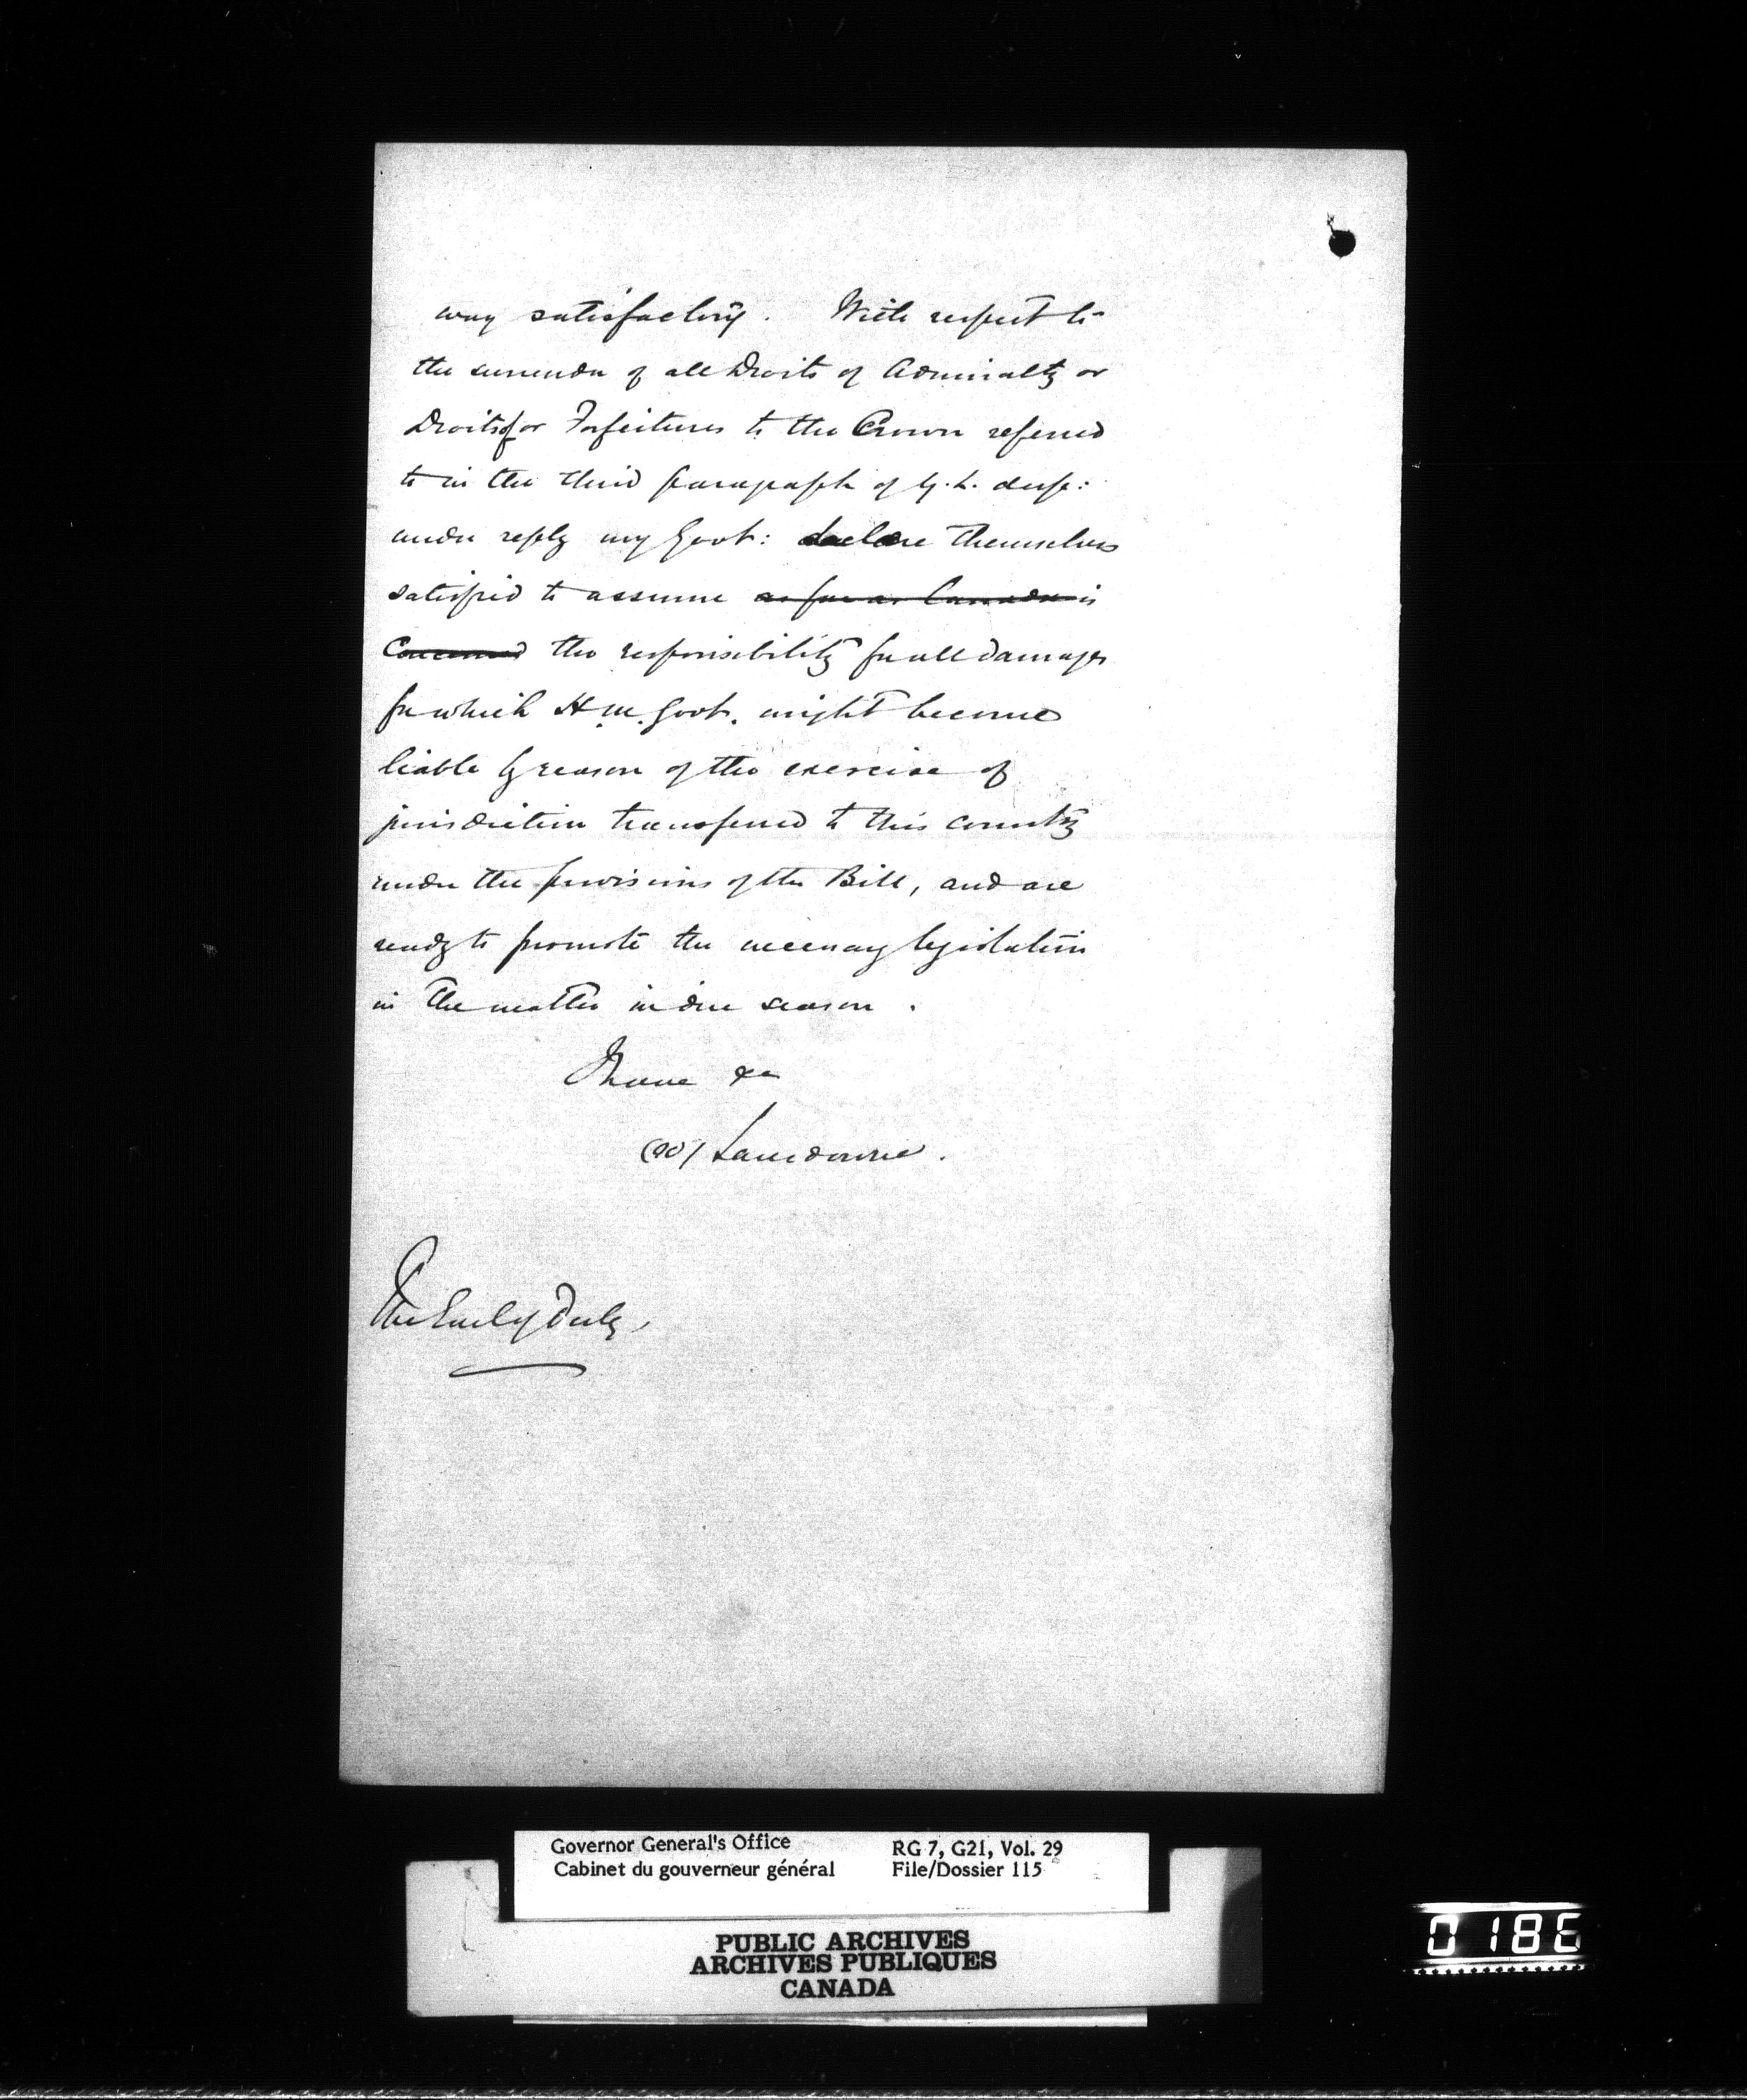 way satisfactory. With respect to
the surrender of all Droits of Admiralty or
Droits of or Forfeitures to the Crown referred
to in the third paragraph of Y.L. desp:
under reply my Govt: declare themselves
satisfied to assume as far as Canada is
concerned the responsibility for all damages
for which H.M. Govt. might become
liable by reason of the exercise of
jurisdiction transferred to this country
under the provisions of the Bill, and are
ready to promote the necessary legislation
in the matter in due season.
I have &c
(sd) Lansdowne.
The Earl of Derby,
Governor General's Office
Cabinet du gouverneur général
RG 7, G21, Vol. 29
File/Dossier 115
PUBLIC ARCHIVES
ARCHIVES PUBLIQUES
CANADA
0186